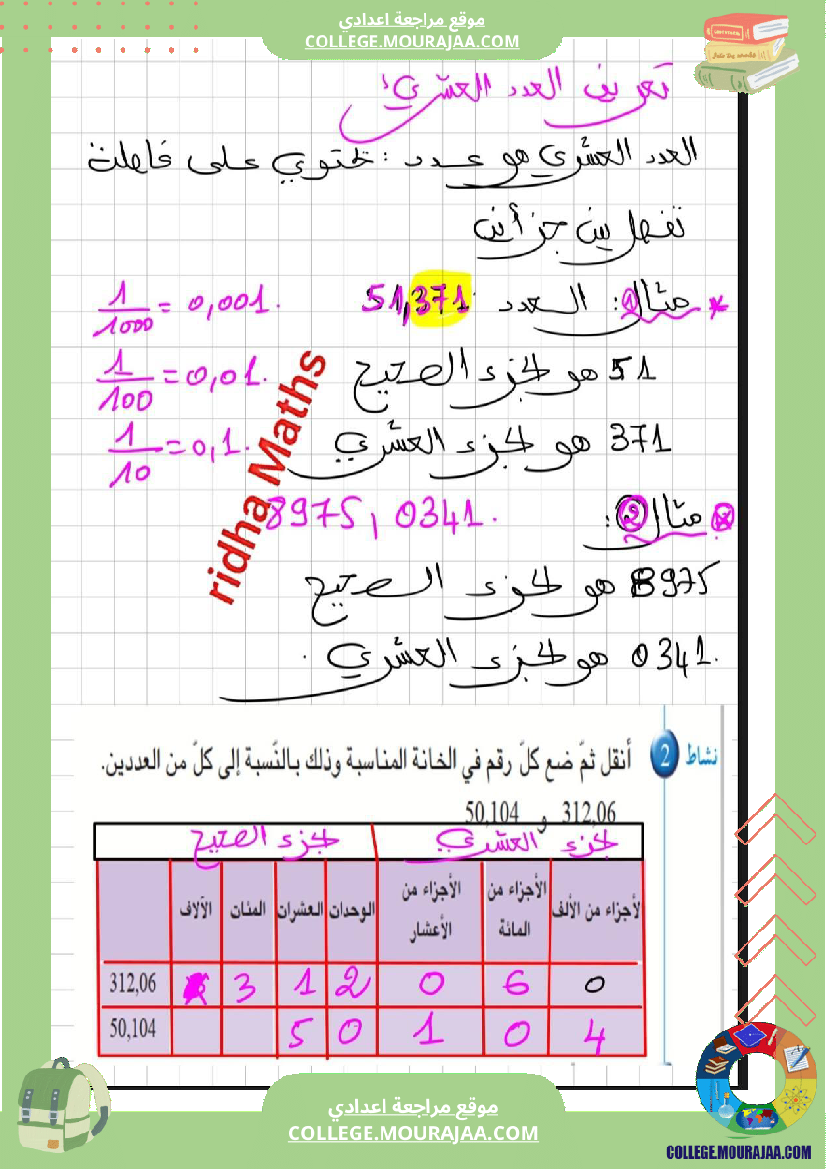 موقع مراجعة اعدادي
COLLEGE.MOURAJAA.COM
تعريف العدد العشري:
العدد العشري هو عدد : يحتوي على فاصلة
تفصل بين جزأين
* مثال 1: العدد 51,371
1/1000 = 0,001.
51 هو الجزء الصحيح
1/100 = 0,01.
371 هو الجزء العشري
1/10 = 0,1.
ridha Maths
* مثال 2: 8975,0341.
8975 هو الجزء الصحيح
0341 هو الجزء العشري.
نشاط 2 أنقل ثمّ ضع كلّ رقم في الخانة المناسبة وذلك بالنّسبة إلى كلّ من العددين.
312,06 و 50,104
الجزء العشري الجزء الصحيح
الأجزاء من الألف الأجزاء من المائة الأجزاء من الأعشار الوحدات العشرات المئات الآلاف
312,06 3 1 2 0 6 0
50,104 5 0 1 0 4
موقع مراجعة اعدادي
COLLEGE.MOURAJAA.COM
COLLEGE.MOURAJAA.COM